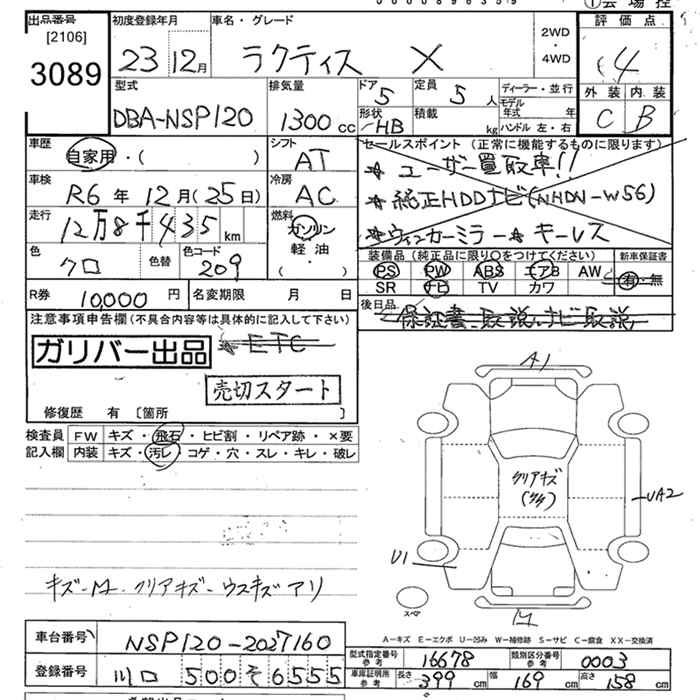 出品番号
[2106]
3089
初度登録年月
23 12月
車名・グレード
ラクティス X
2WD
・
4WD
評価点
4
外装 内装
C B
型式
DBA-NSP120
排気量
1300 cc
ドア
5
形状
HB
定員
5 人
積載
kg
ディーラー・並行
モデル年式 年
ハンドル 左・右
車歴
自家用・( )
シフト
AT
車検
R6 年 12月 (25日)
冷房
AC
走行
12万8千435 km
燃料
ガソリン
軽油
( ・ )
色
クロ
色替
色コード
209
セールスポイント (正常に機能するものに限ります)
★ ユーザー買取車!!
★ 純正HDDナビ(NHDN-W56)
★ ウィンカーミラー ★ キーレス
装備品 (純正品に限り○をつけてください)
新車保証書
PS PW ABS エアB AW
SR ナビ TV カワ
有・無
R券 10,000 円
名変期限 月 日
後日品
保証書、取説、ナビ取説
注意事項申告欄(不具合内容等は具体的に記入して下さい)
ガリバー出品
★ETC
売切スタート
修復歴 有 〔箇所 〕
検査員
記入欄
FW キズ・飛石・ヒビ割・リペア跡・×要
内装 キズ・汚レ・コゲ・穴・スレ・キレ・破レ
A1
クリアキズ
UA2
U1
スペア
キズ-M・クリアキズ-ウスキズアリ
A-キズ E-エクボ U-凹み W-補修跡 S-サビ C-腐食 XX-交換済
車台番号
NSP120-2027160
型式指定番号
参考
16678
類別区分番号
参考
0003
登録番号
川口 500 そ 6555
車庫証明所
参考
長さ 399 cm 幅 169 cm 高さ 158 cm